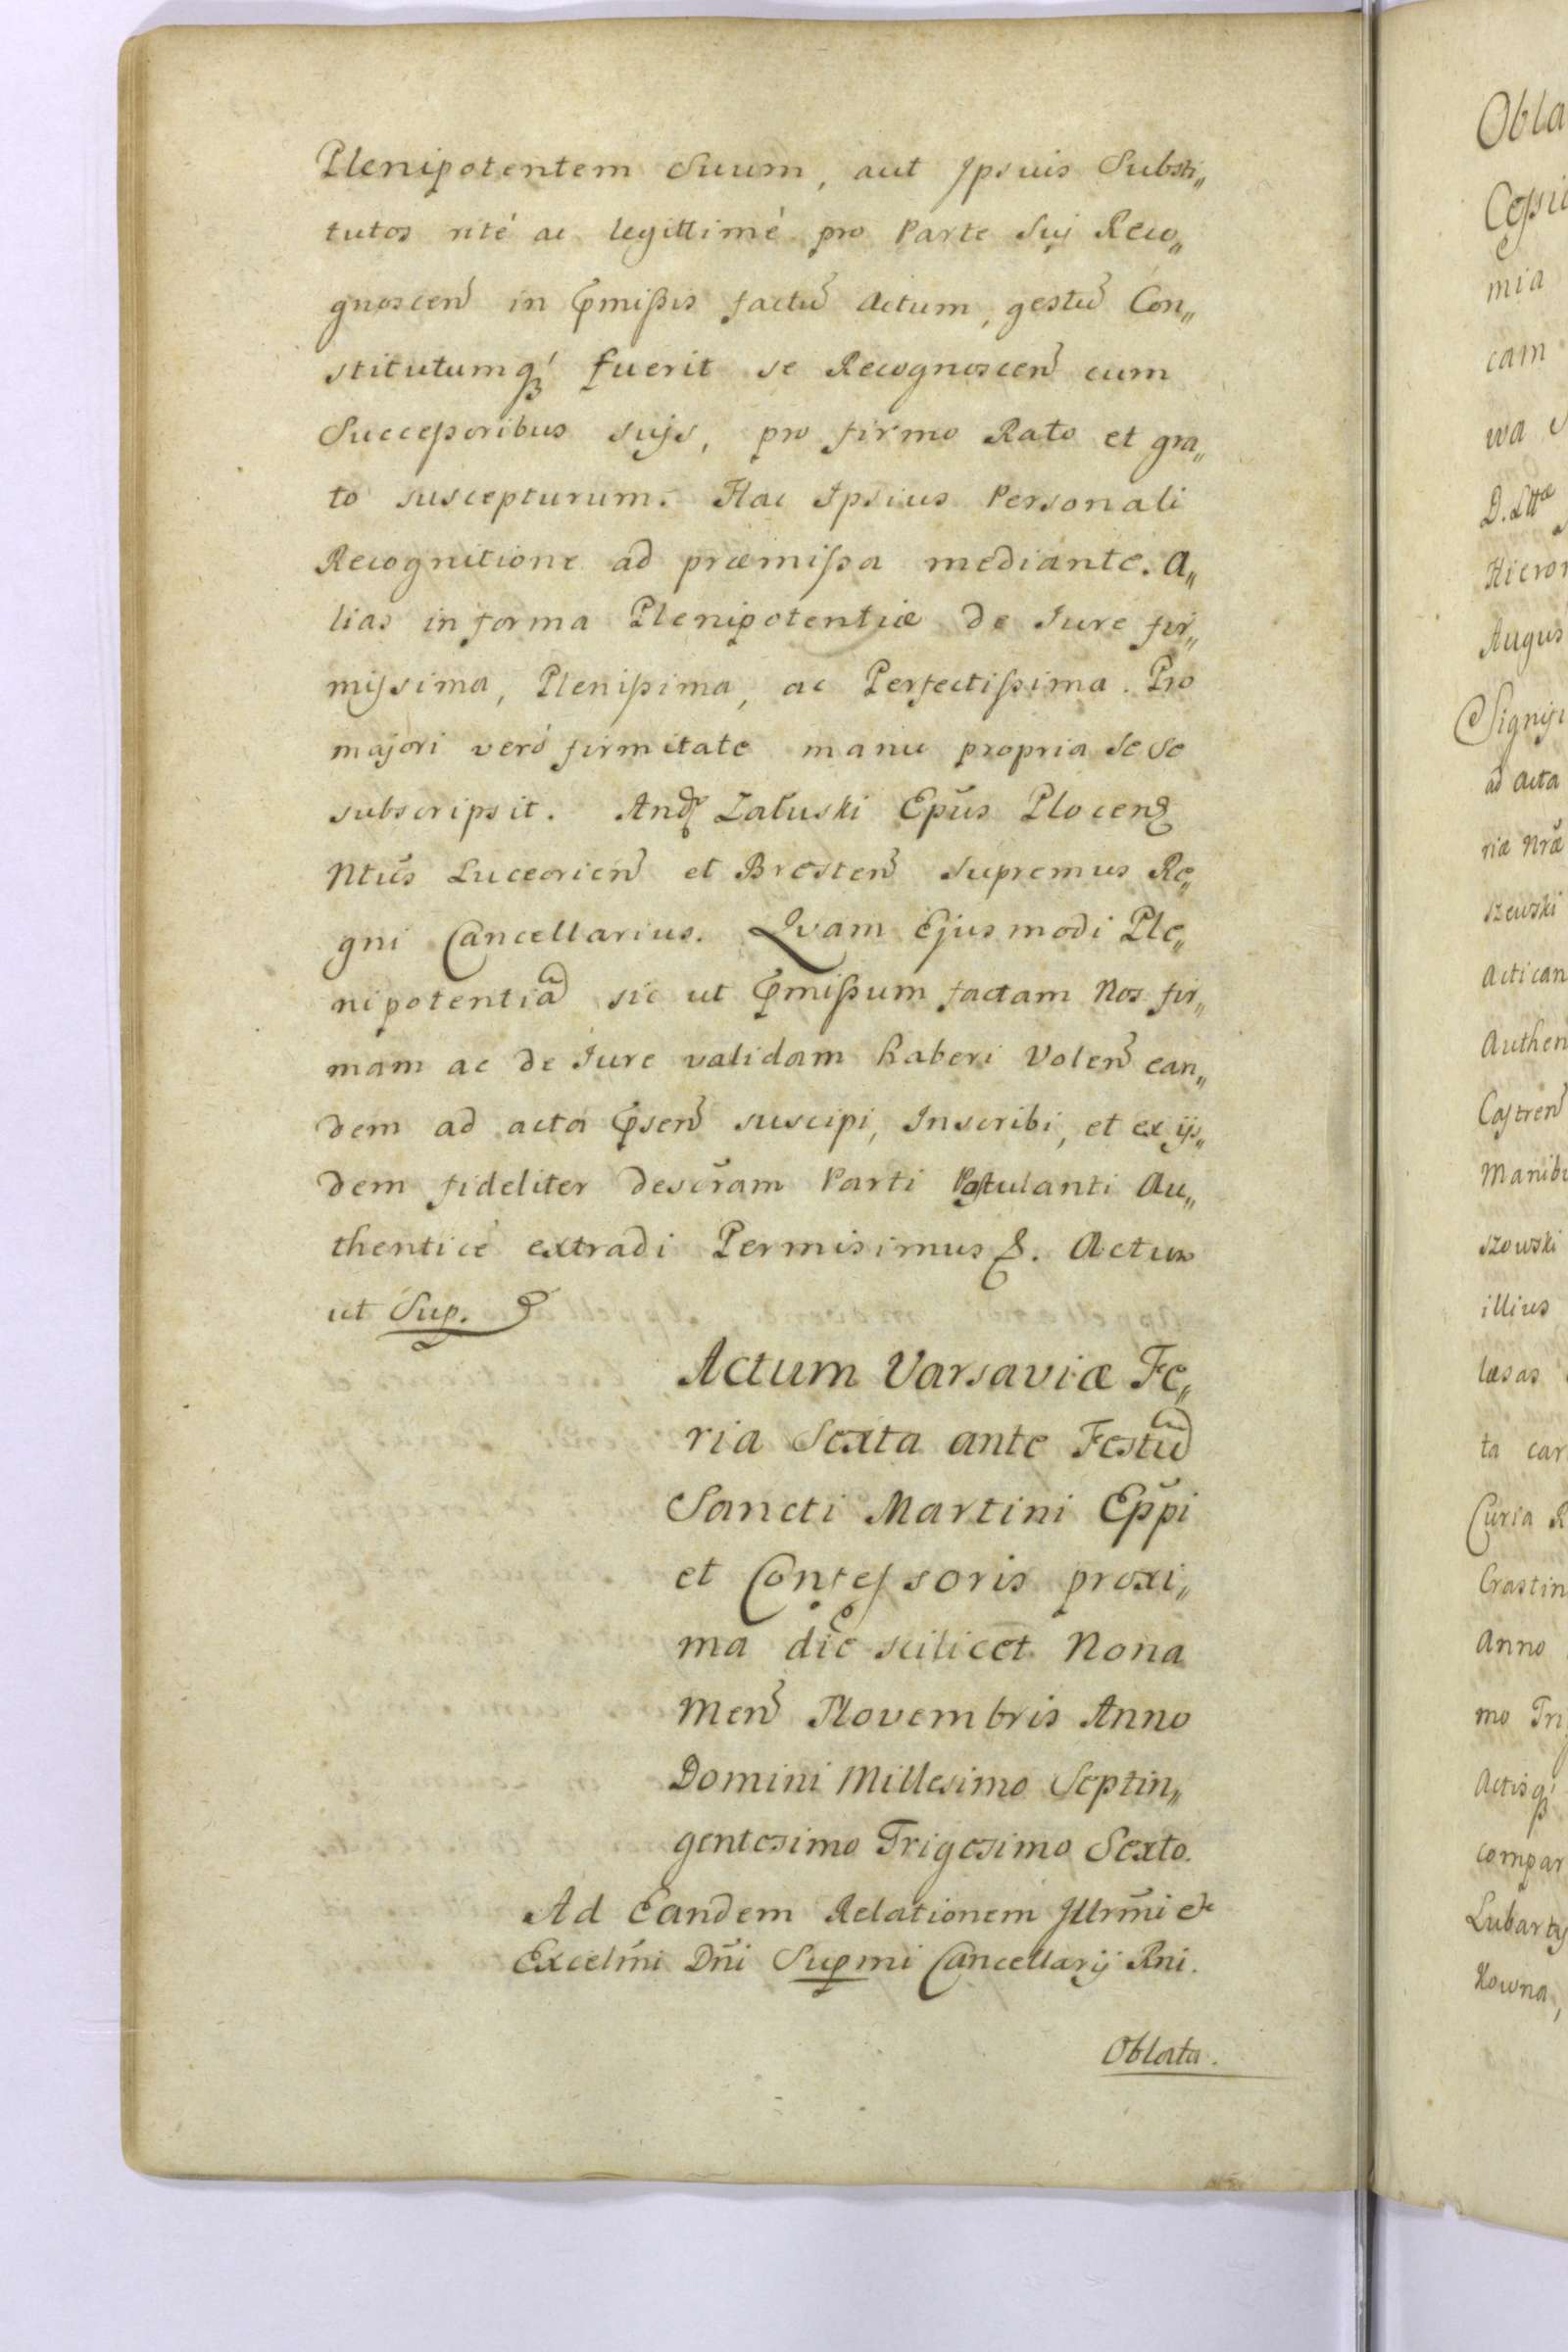 Plenipotentem Suum, aut Jpsuis Substi„
tutos rité ac legittimé pro Parte Sui Reco„
gnoscen̄ in Pmißis factū Actum, gestū Con„
stitutumq́ fuerit se Recognoscen̄ cum
Succeßoribus suis, pro firmo Rato et gra„
to suscepturum. Hac Ipsius Personali
Recognitione ad præmißa mediante. A„
lias in forma Plenipotentiæ de Iure fir„
missima, Plenißima, ac Perfectißima. Pro
majori veró firmitate manu propria Se Se
subscripsit. Andr Załuski Epūs Plocen̄
Ntūs Luceorien̄ et Bresten̄ Supremus Re„
gni Cancellarius. Qvam Ejusmodi Ple„
nipotentiā sic ut Pmißum factam Nos fir„
mam ac de Iure validam haberi Volen̄ ean„
dem ad acta Psen̄ suscipi, Inscribi, et ex ijs„
dem fideliter descr̄am Parti Postulanti Au„
thenticé extradi Permisimus &. Actum
ut Sup. &
Actum Varsaviæ Fe„
ria Sexta ante Festū
Sancti Martini Epp̄i
et Confessoris proxi„
ma die scilicet Nona
Men̄ Novembris Anno
Domini Millesimo Septin„
gentesimo Trigesimo Sexto.
Ad Eandem Relationem Jllrm̄i et
Excelm̄i Dn̄i Supmi Cancellarij Rni.
Oblata.
Obla
Cessi
mia
cam
wa
D. Lttæ
Hieron
Augus
Signifi
ad acta
ria Nrǣ
szewski
Actican
Authen
Castren̄
Manibu
szowski
illius
læsas
ta car
Curia R
Crastin
Anno
mo Tri
Actisq́
compar
Lubartÿ
Kowna,